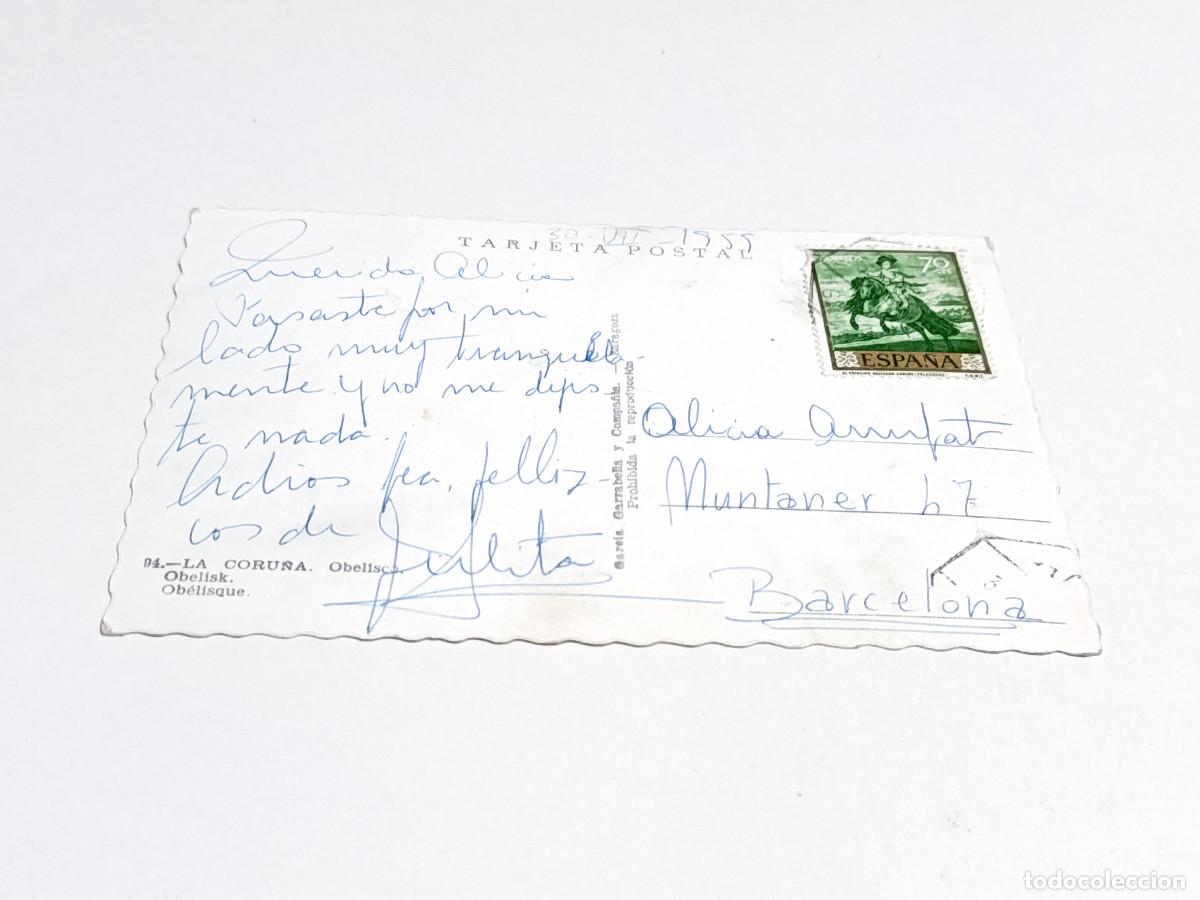 30-VII-1955
TARJETA POSTAL
Querida Alicia
Pasaste por mi
lado muy tranquila-
mente y no me dijis-
te nada.
Adios fea, pelliz-
cos de
Julita
94.—LA CORUÑA. Obelisco
Obelisk.
Obélisque.
García Garrabella y Compañía. - Zaragoza
Prohibida la reproducción
CORREOS
70 CTS
ESPAÑA
EL PRINCIPE BALTASAR CARLOS - VELAZQUEZ
F.N.M.T.
Alicia
Muntaner
Barcelona
todocoleccion